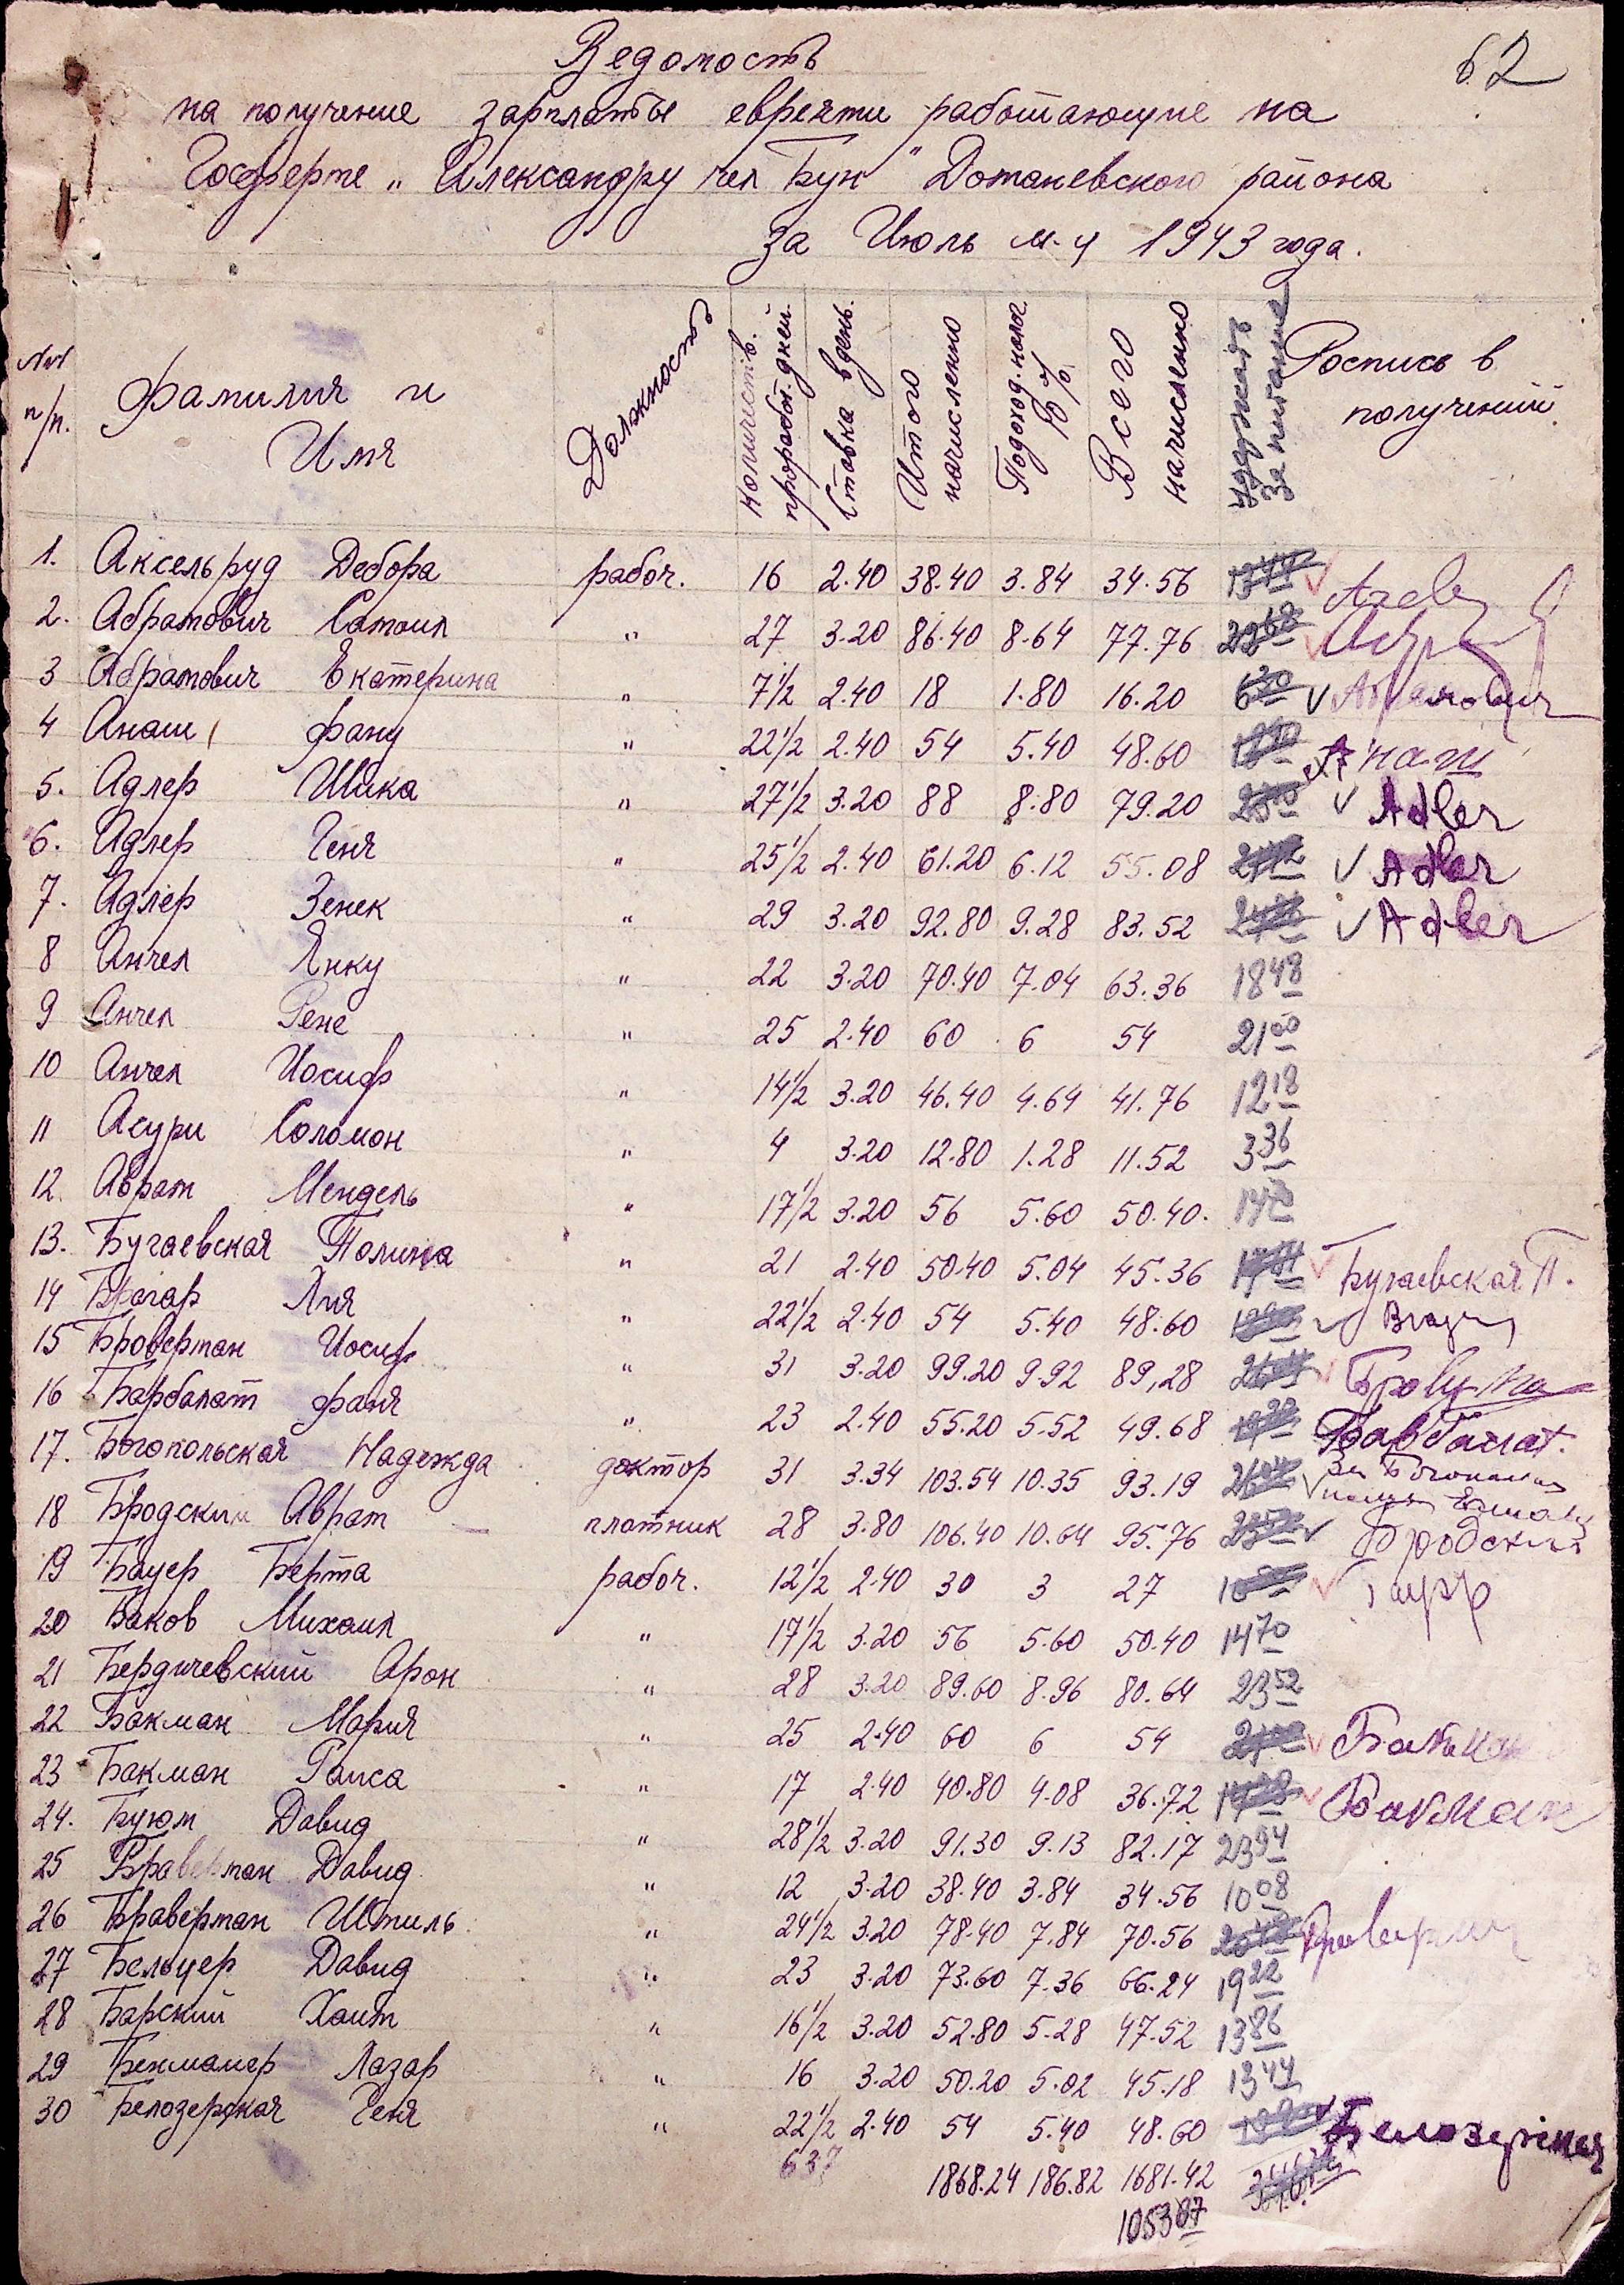 62
Ведомость
на получение зарплаты евреями работающие на
Госферме „Александру чел Бун" Доманевского района
за Июль м-ц 1943 года.
№№ п/п. Фамилия и Имя Должность Количеств. проработ. дней. Ставка в день. Итого начисленно Подоход. налог 10% Всего начислено Удержать за питание Роспись в получений
1. Аксельруд Дебора рабоч. 16 2.40 38.40 3.84 34.56 13 44
2. Абрамович Самоил " 27 3.20 86.40 8.64 77.76 22 68
3 Абрамович Екатерина " 7 1/2 2.40 18 1.80 16.20 6 30 Абрамович
4 Анаш Фану " 22 1/2 2.40 54 5.40 48.60 18 90 Анаш
5. Адлер Шика " 27 1/2 3.20 88 8.80 79.20 23 10 Adler
6. Адлер Геня " 25 1/2 2.40 61.20 6.12 55.08 21 42 Adler
7. Адлер Зенек " 29 3.20 92.80 9.28 83.52 24 36 Adler
8 Анчел Янку " 22 3.20 70.40 7.04 63.36 18 48
9 Анчел Рене " 25 2.40 60 6 54 21 00
10 Анчел Иосиф " 14 1/2 3.20 46.40 4.64 41.76 12 18
11 Асури Соломон " 4 3.20 12.80 1.28 11.52 3 36
12. Аврам Мендель " 17 1/2 3.20 56 5.60 50.40. 14 70
13. Бугаевская Полина " 21 2.40 50.40 5.04 45.36 17 64 Бугаевская П.
14 Брагар Лия " 22 1/2 2.40 54 5.40 48.60 18 90
15 Броверман Иосиф " 31 3.20 99.20 9.92 89,28 26 04
16 Барбалат Фаня " 23 2.40 55.20 5.52 49.68 19 32 Барбалат.
17. Богопольская Надежда доктор 31 3.34 103.54 10.35 93.19 26 04 За Богополь
18 Бродский Аврам плотник 28 3.80 106.40 10.64 95.76 23 52 Бродский
19 Бауер Берта рабоч. 12 1/2 2.40 30 3 27 10 50
20 Баков Михаил " 17 1/2 3.20 56 5.60 50.40 14 70
21 Бердичевский Арон " 28 3.20 89.60 8.96 80.64 23 52
22 Бакман Мария " 25 2.40 60 6 54 21 00 Бакман
23 Бакман Раиса " 17 2.40 40.80 4.08 36.72 14 28 Бакман
24. Буюм Давид " 28 1/2 3.20 91.30 9.13 82.17 23 94
25 Браверман Давид " 12 3.20 38.40 3.84 34.56 10 08
26 Браверман Шмиль " 24 1/2 3.20 78.40 7.84 70.56 20 58 Браверман
27 Бельцер Давид " 23 3.20 73.60 7.36 66.24 19 22
28 Барский Хаим " 16 1/2 3.20 52.80 5.28 47.52 13 86
29 Лазар " 16 3.20 50.20 5.02 45.18 13 44
30 Белозерская Геня " 22 1/2 2.40 54 5.40 48.60 18 90 Белозерская
637 1868.24 186.82 1681.42
1053 87